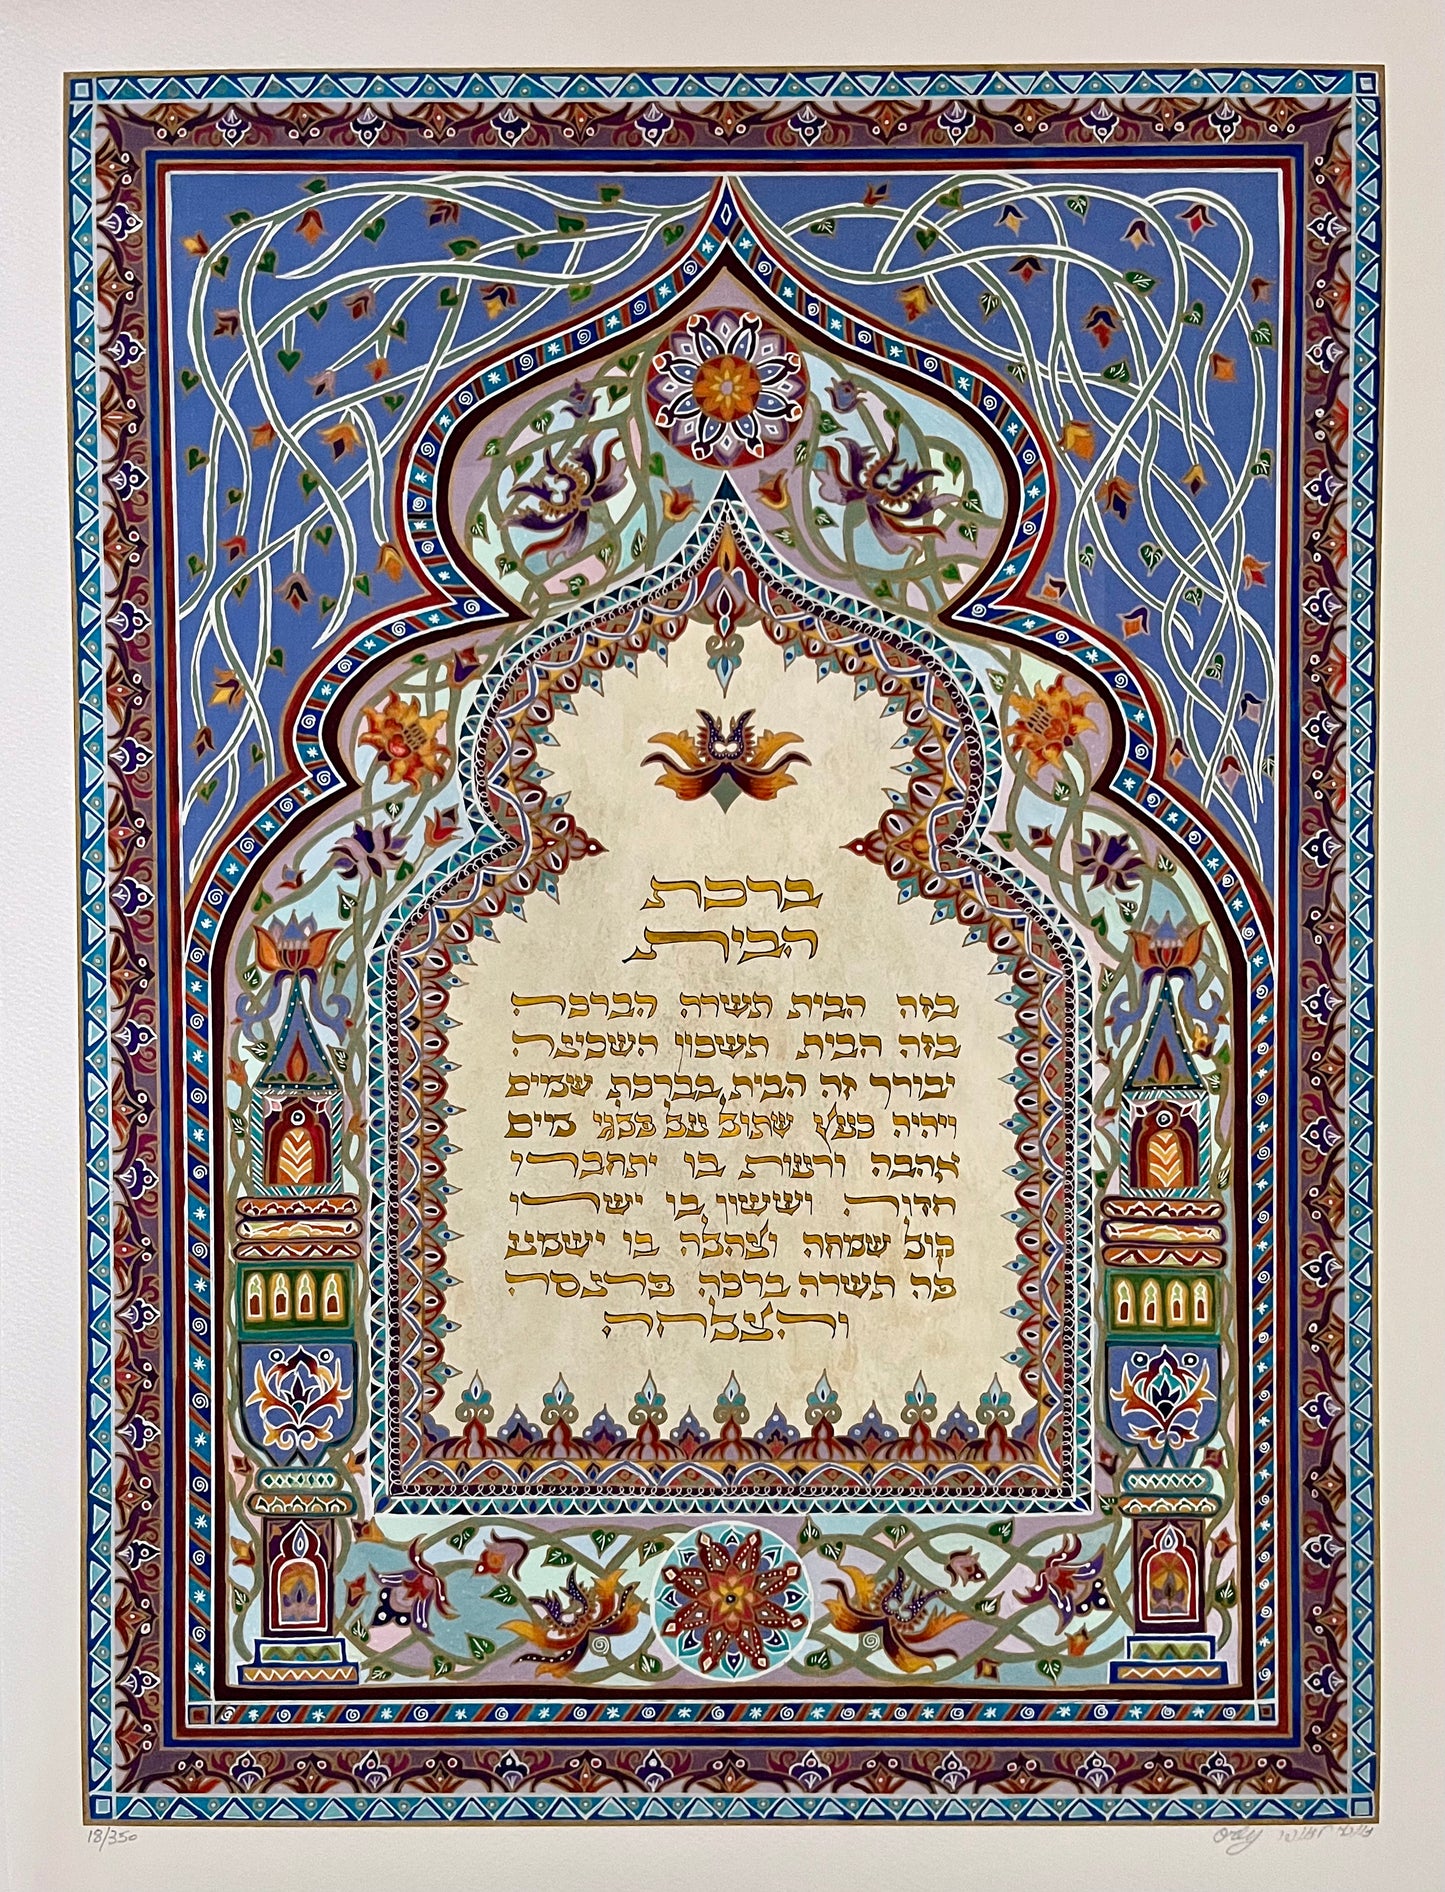 ברכת
הבית
בזה הבית תשרה הברכה
בזה הבית תשכון השכינה
יבורך זה הבית בברכת שמים
ויהיה כעץ שתול על פלגי מים
אהבה ורעות בו יתחברו
חדוה וששון בו ישרו
קול שמחה וצהלה בו ישמע
פה תשרה ברכה פרנסה
והצלחה
18/350
Orly